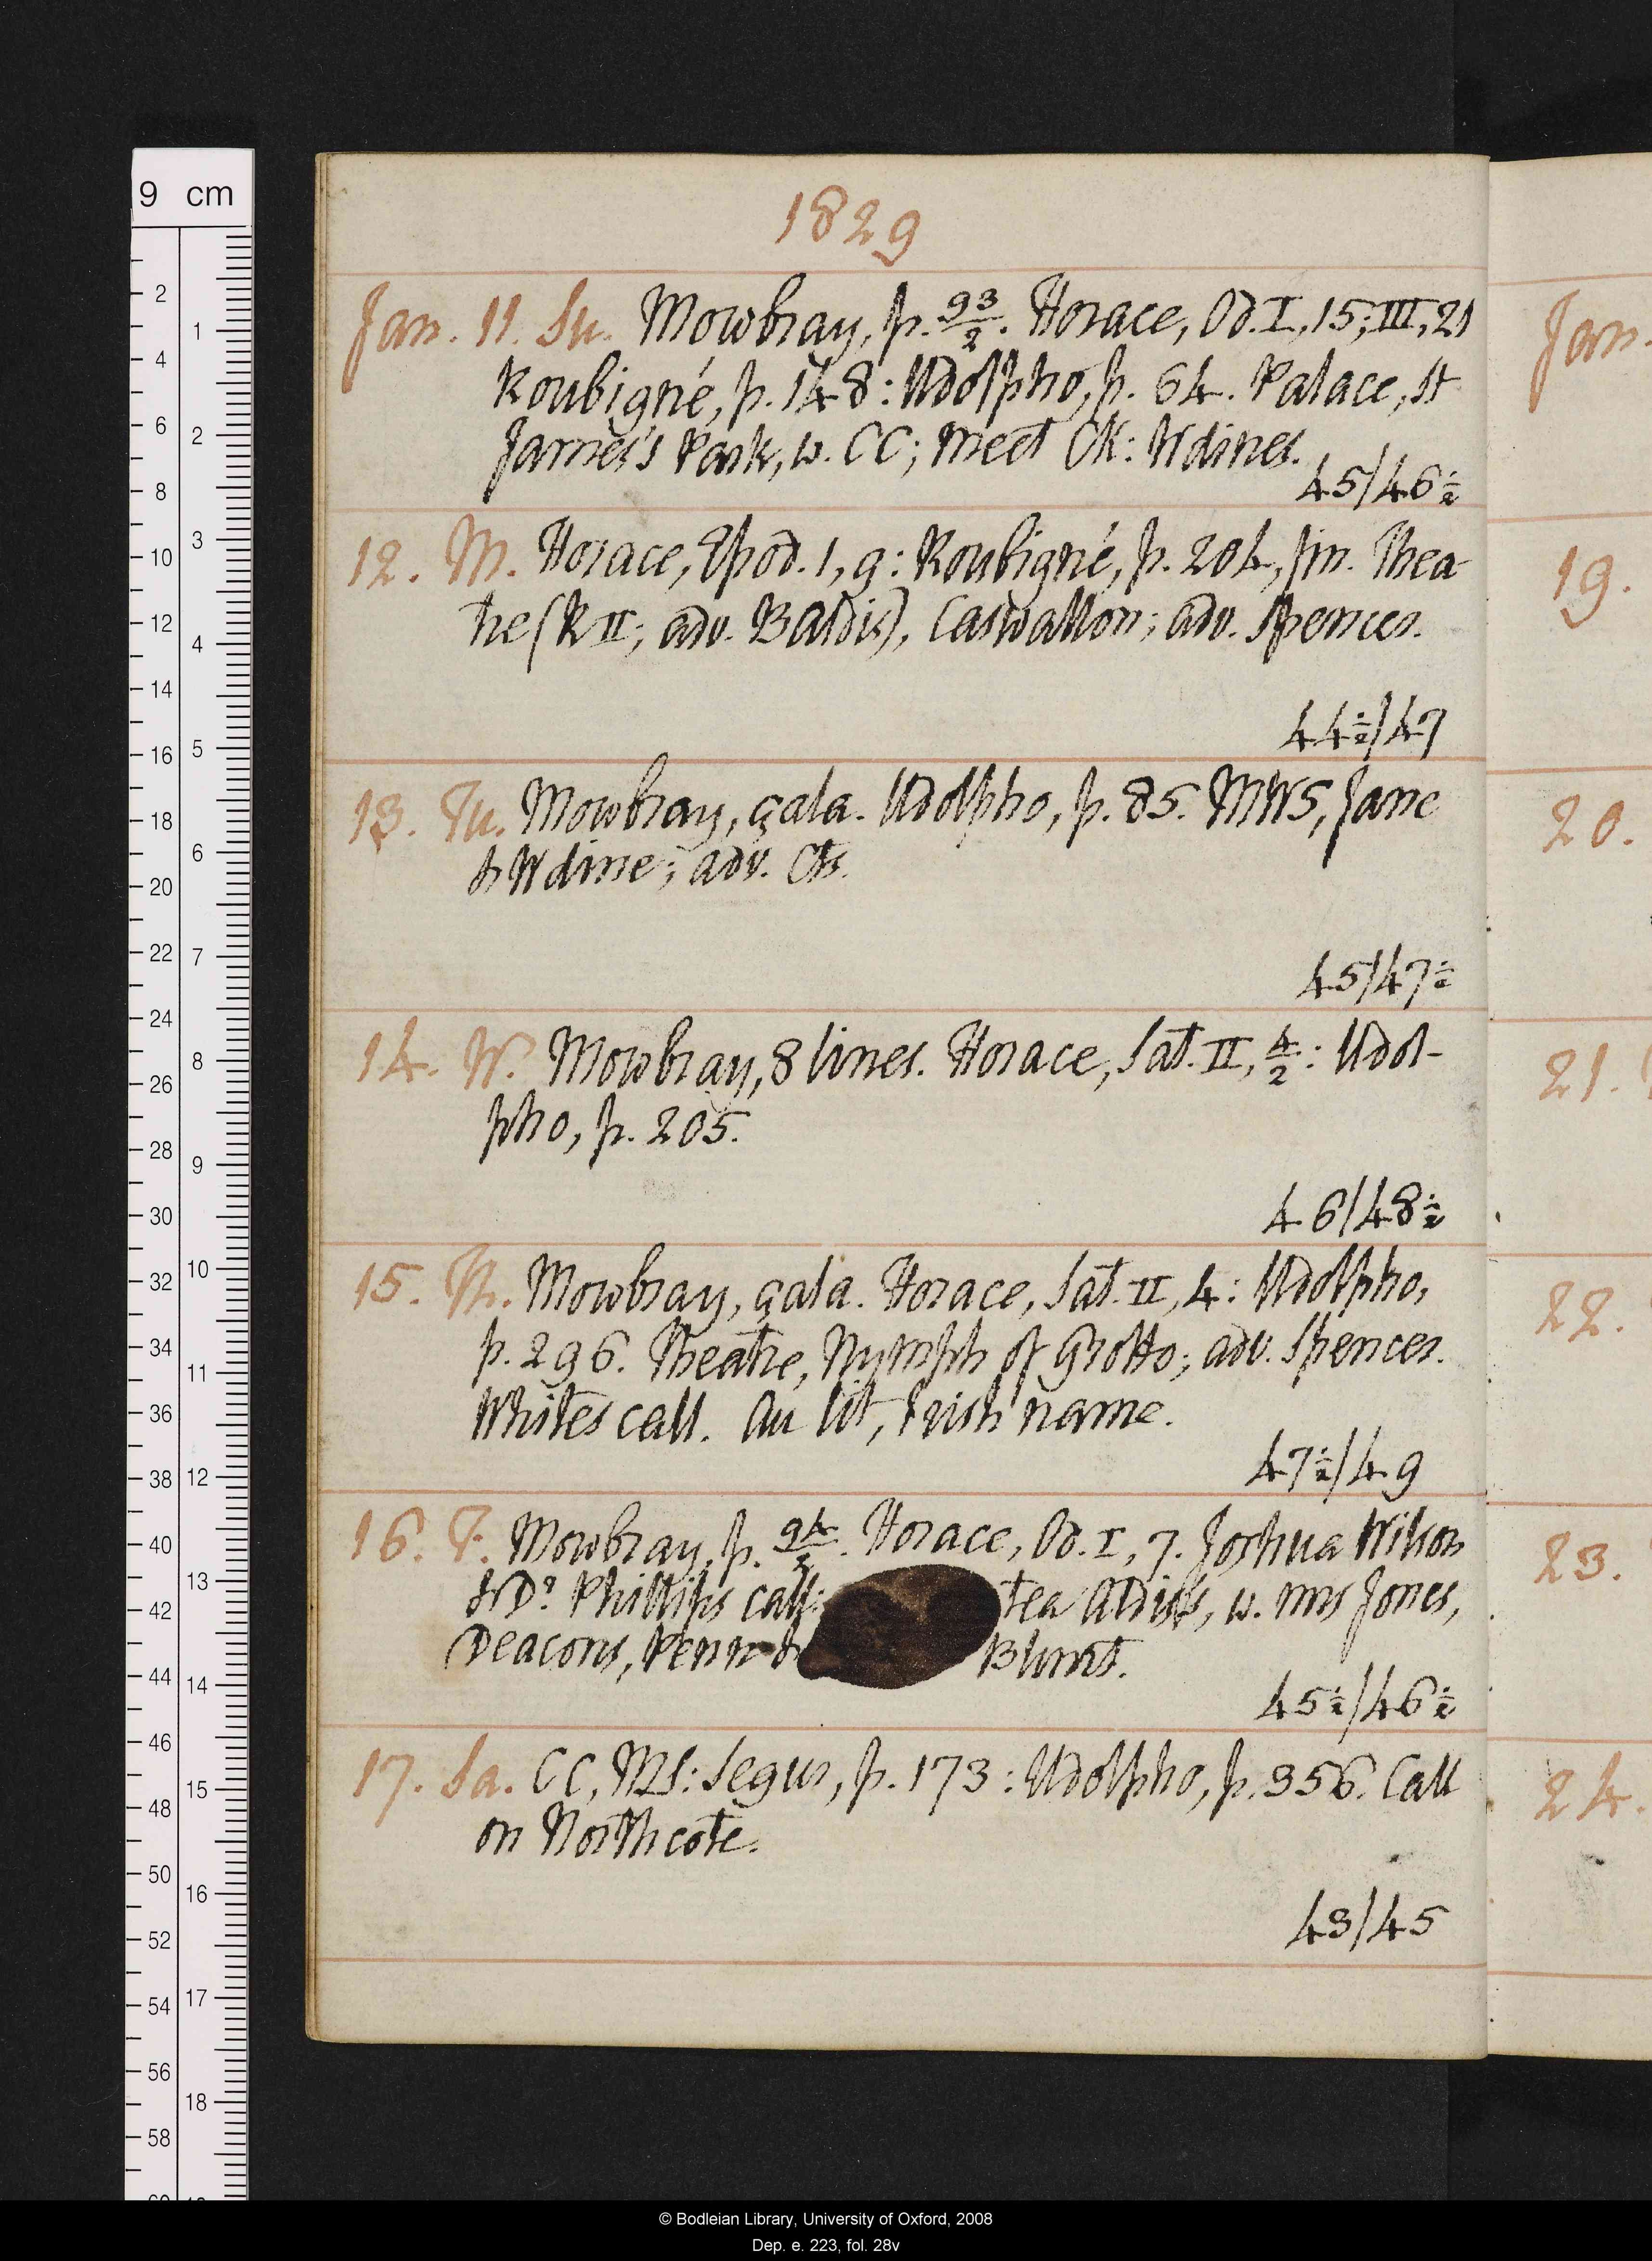 9 cm
1829
Jan. 11. Su. Mowbray, p. 93/2. Horace, Od. I, 15; III, 21
Roubigné, p. 148: Udolpho, p. 64. Palace, St
James's Park, w. CC; meet CK: W dines.
45/46½
12. M. Horace, Epod. 1, 9: Roubigné, p. 204, fin. Thea-
tre (R II; adv. Baldis), Caswallon; adv. Spences.
44½/47
13. Tu. Mowbray, çala. Udolpho, p. 85. MWS, Jane
& W dine; adv. Cts.
45/47½
14. W. Mowbray, 8 lines. Horace, Sat. II, 4/2: Udol-
pho, p. 205.
46/48½
15. Th. Mowbray, çala. Horace, Sat. II, 4: Udolpho,
p. 296. Theatre, Nymph of Grotto; adv. Spences.
Whites call. Au lit, Irish name.
47½/49
16. F. Mowbray, p. 94/2. Horace, Od. I, 7. Joshua Wilson
& Dr Phillips call: tea Aldis's, w. mrs Jones,
Deacons, Penn & Blunt.
45½/46½
17. Sa. CC, MS: Segur, p. 173: Udolpho, p. 356. Call
on Northcote.
43/45
Jan.
19.
20.
21.
22.
23.
24.
© Bodleian Library, University of Oxford, 2008
Dep. e. 223, fol. 28v